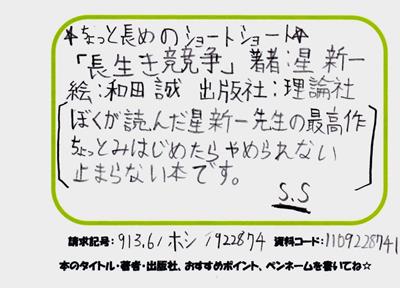 ★ちょっと長めのショートショート★
「長生き競争」著者:星 新一
絵:和田 誠 出版社:理論社
ぼくが読んだ星新一先生の最高作
ちょっとみはじめたらやめられない
止まらない本です。
S.S
請求記号: 913.61 ホシ 1922874 資料コード: 1109228741
本のタイトル・著者・出版社、おすすめポイント、ペンネームを書いてね☆